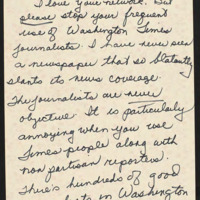 I love your network. But
please stop your frequent
use of Washington Times
journalists. I have never seen
a newspaper that so blatantly
slants its news coverage.
The journalists are never
objective. It is particularly
annoying when you use
Times people along with
non partisan reporters.
There's hundreds of good
in Washington